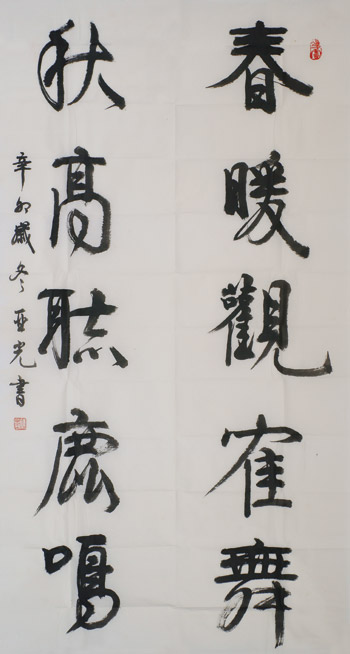 春暖觀寉舞
秋高聽鹿鳴
辛卯歲冬亞光書